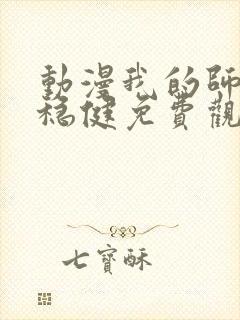 動漫我的師
穩健免費觀
七寶酥